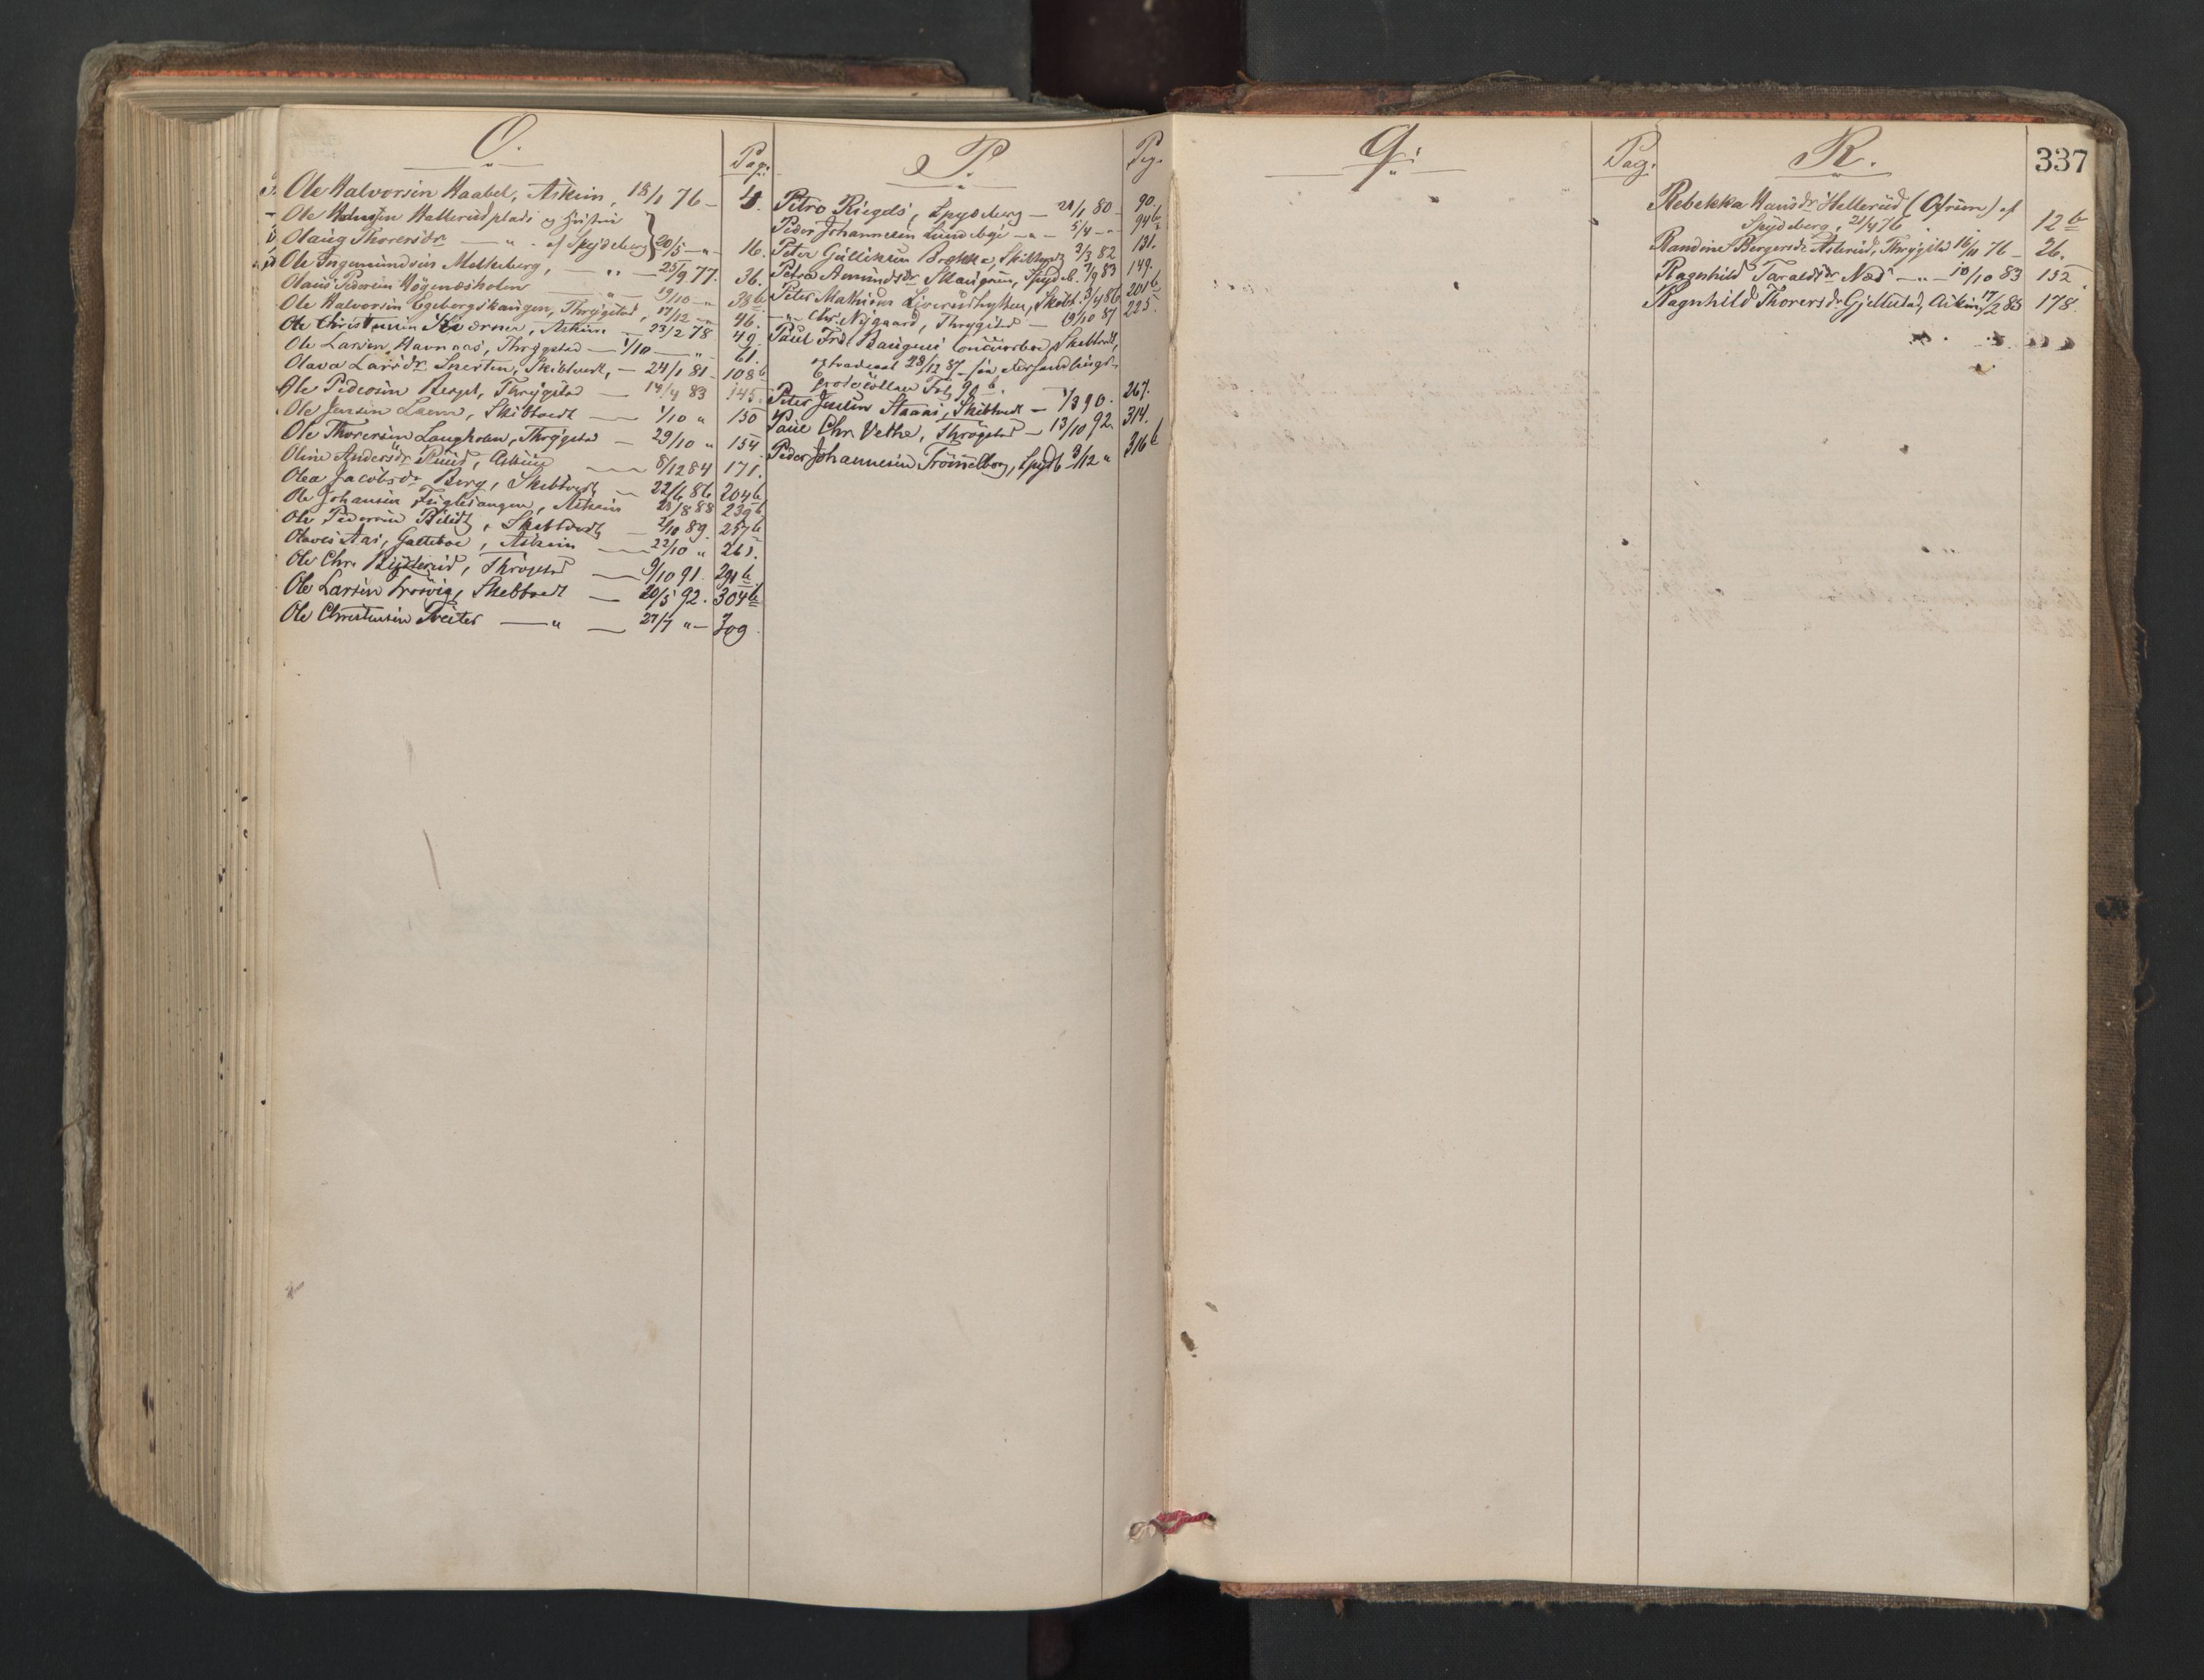 O.
Pag:
Ole Halvorsen Haabel, Askim, 18/1 76 - 4.
Ole Hansen Hellerudplads og Hustru
Olaug Thorersdr — " - af Spydeberg } 20/5 - " - 16.
Ole Ingemundsen Molteberg, — " — 25/9 77. 36.
Olaus Pedersen Högenæsholen — " — 19/10 - " 38b
Ole Halvorsen Egebergskaugen, Thrygstad, 17/12 - " 46.
Ole Christensen Kværner, Askim - 23/2 78 49.
Ole Larsen Havnaas, Thrygstad — 1/10 — " - 61.
Olava Larsdr Snerten, Skibtvedt, — 24/1 81 - 108b
Ole Pedersen Berget, Thrygstad — 14/4 83 145.
Ole Jensen Lacon, Skibtvedt — 1/10 " 150
Ole Thorersen Langholen, Thrygstad — 29/10 " 154.
Oline Andersdr Ruud, Askim — 8/12 84 171.
Olea Jacobsdr Berg, Skibtvedt — 22/6 86 204b
Ole Johansen Fuglesangen, Askim 28/8 88 239b
Ole Pedersen Bilidt, Skibtvedt — 2/10 89. 257b
Olaves Aas, Galteboe, Askim — 22/10 " 261.
Ole Chr. Rysterud, Thrøgstad — 9/10 91. 291b
Ole Larsen Frosvig, Skibtvedt — 20/5 92. 304b
Ole Christensen Tveiter — " — 27/7 " — 309.
P.
Pag.
Petra Riegels, Spydeberg — 21/1 80 - 90.
Peder Johannesen Lundebye - " - 5/4 - " - 94b
Peter Gulliksen Brekke, Skibtvedt 3/3 82 131.
Petra Amundsdr Skaugrun, Spydeb. 7/9 83 149.
Peter Mathisen Liverudhytten, Skibt. 3/4 86 201b
— " - Chr. Nygaard, Thrygstad — 19/10 87 225.
Paul Frd. Baugens Concursboe, Skibtvedt,
extraderet 28/12 87 - see Forhandlings-
protocollen Fol. 90b.
Peter Julin Staaai, Skibtvedt — 7/3 90. 267.
Paul Chr. Vethe, Thrøgstad — 13/10 92. 314.
Peder Johannesen Trømelborg, Spydb 3/12 " 316b
Q:
Pag:
R.
337
Rebekka Hansdr Hellerud (Ofrim) af
Spydeberg, 21/4 76 12b
Randine Bergersdr Askerud, Thrygstad 16/11 76 - 26.
Ragnhild Taraldsdr Næs - " - 10/10 83 152.
Ragnhild Thorersdr Gjellestad, Askim 17/2 85 178.